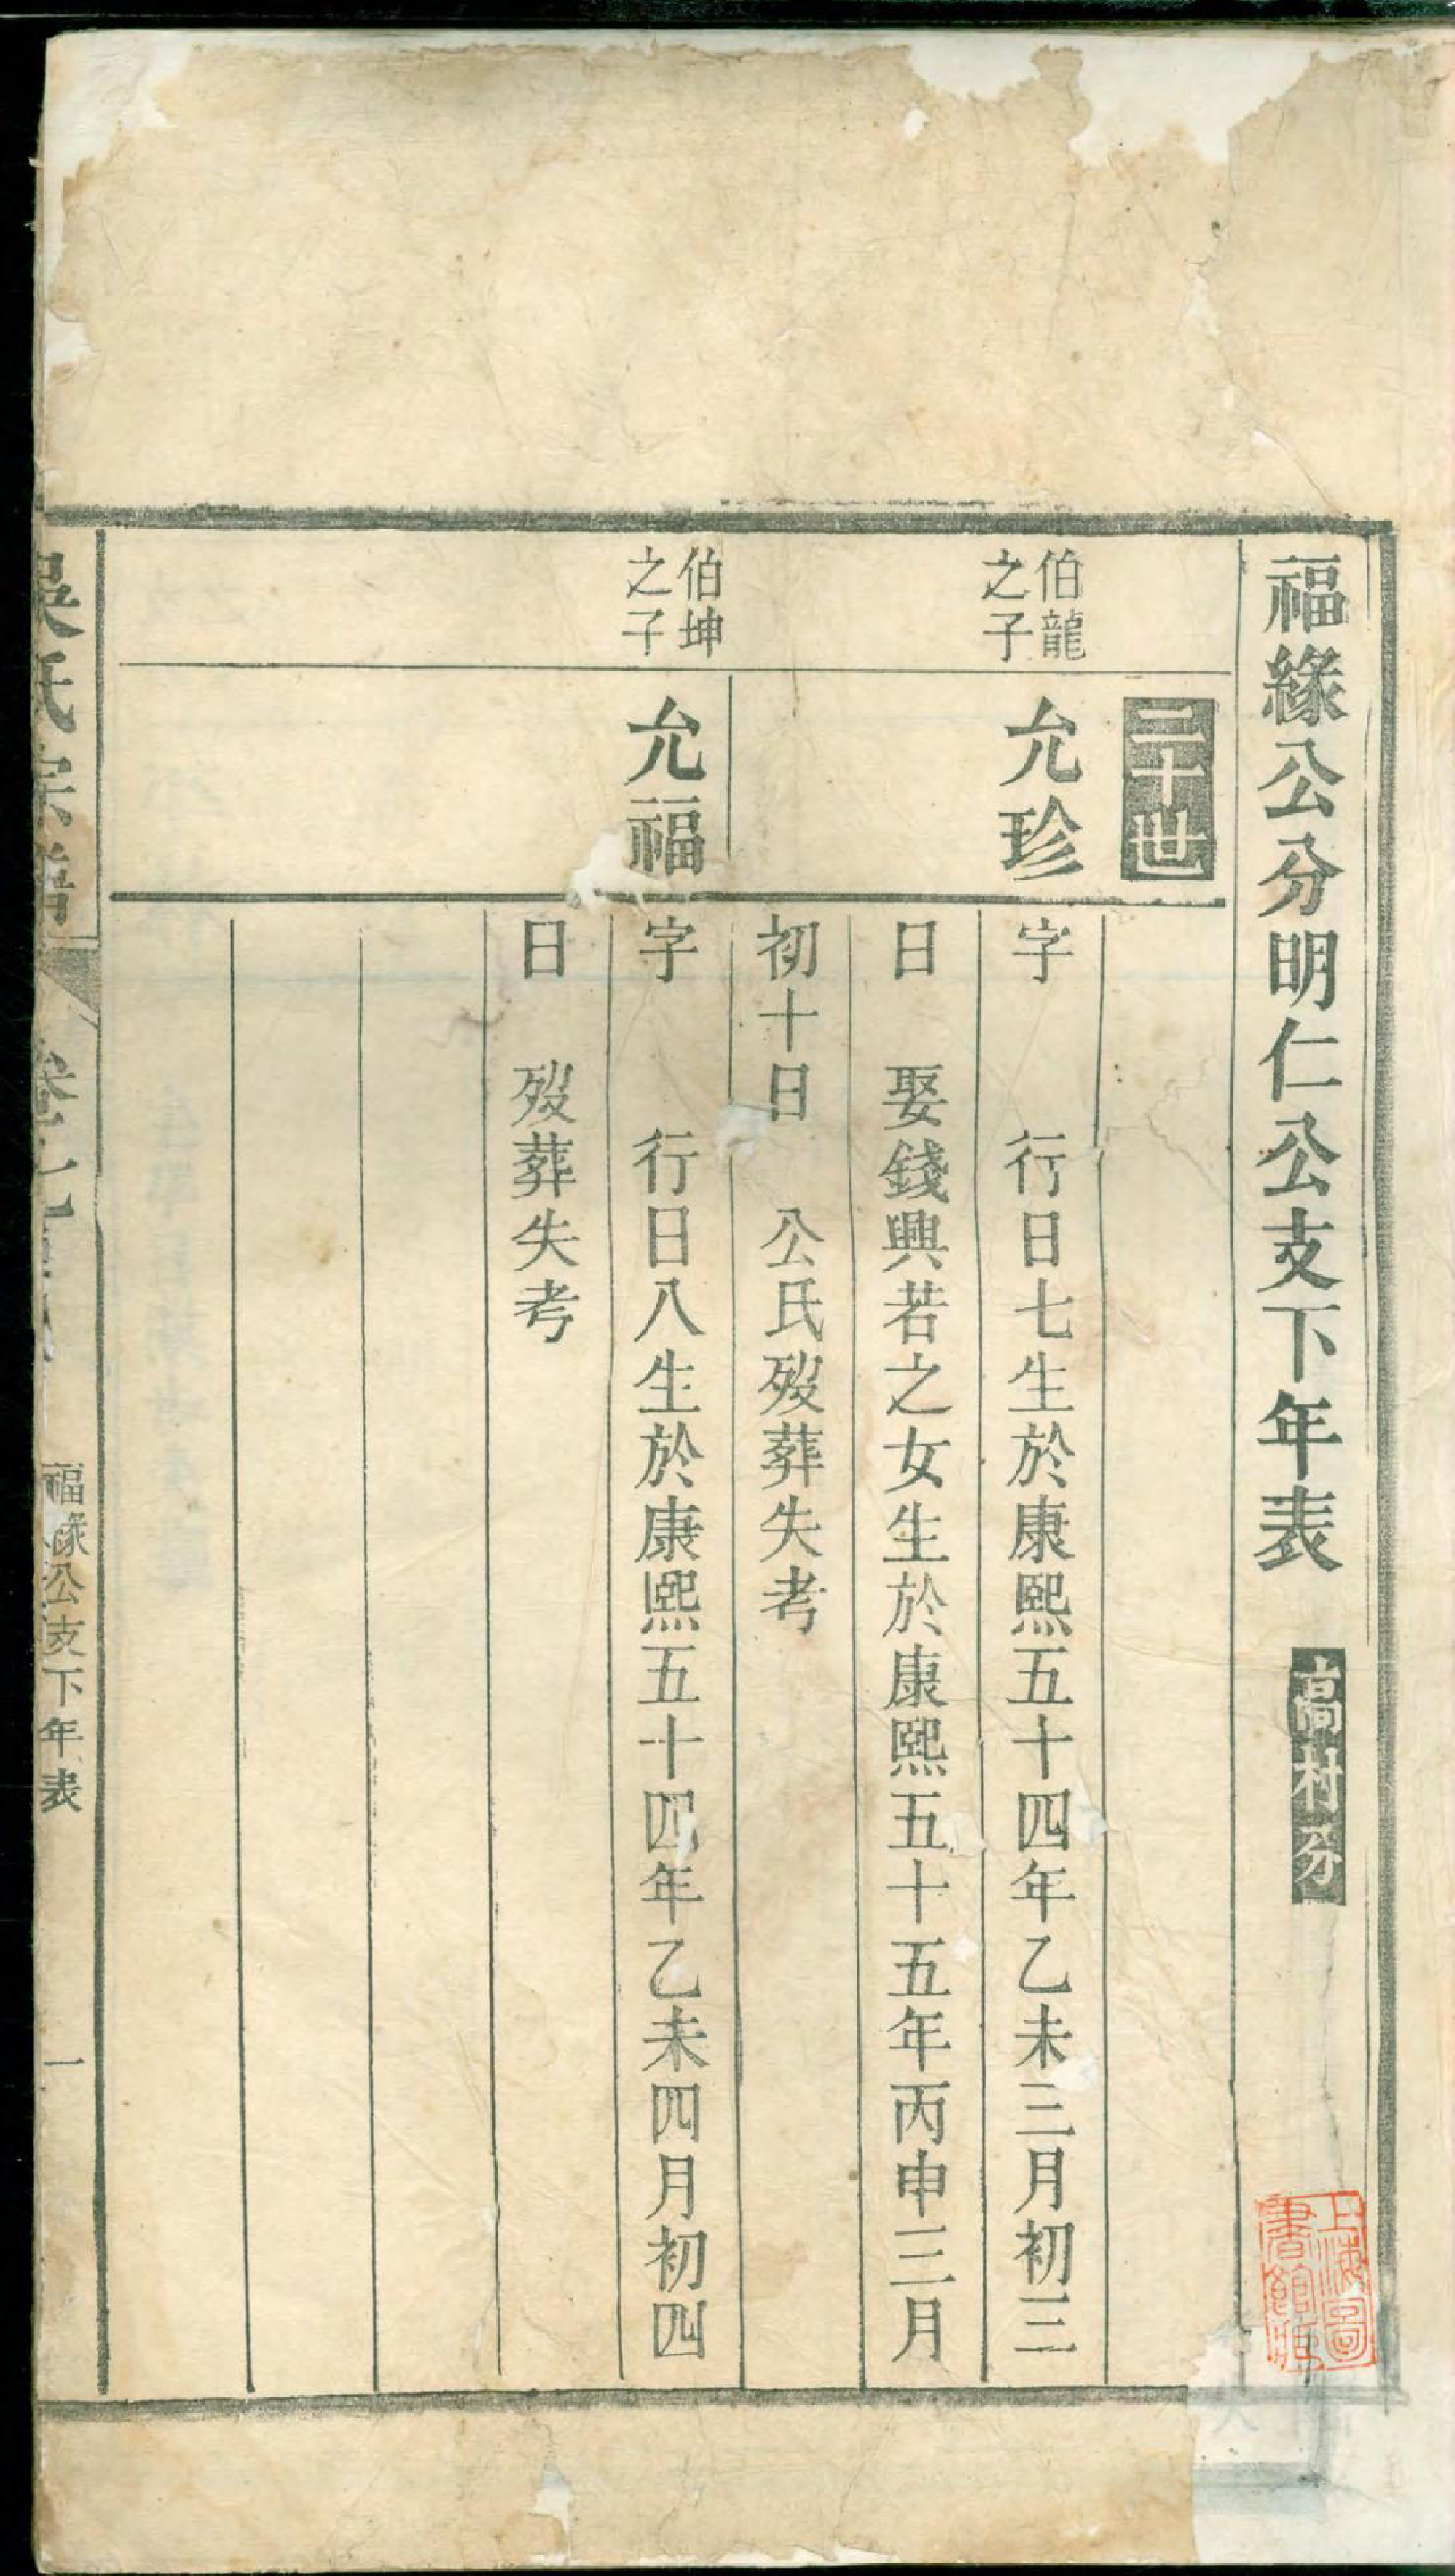 福緣公分明仁公支下年表 高村分
二十世
伯龍之子
允珍
字 行日七生於康熙五十四年乙未三月初三
日 娶錢興若之女生於康熙五十五年丙申三月
初十日 公氏歿葬失考
伯坤之子
允福
字 行日八生於康熙五十四年乙未四月初四
日 歿葬失考
吳氏宗譜
福緣公支下年表
一
上海圖書館藏